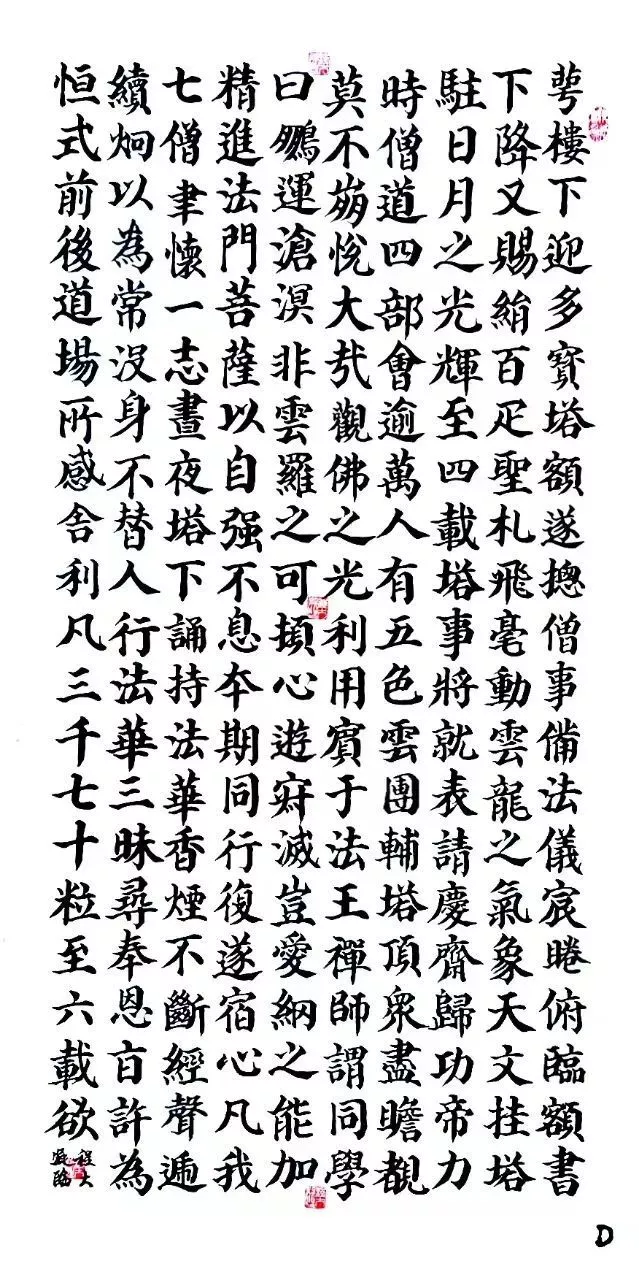 萼樓下迎多寶塔額遂摠僧事備法儀宸睠俯臨額書
下降又賜絹百疋聖札飛毫動雲龍之氣象天文挂塔
駐日月之光輝至四載塔事將就表請慶齋歸功帝力
時僧道四部會逾萬人有五色雲團輔塔頂衆盡瞻覩
莫不崩悅大哉觀佛之光利用賓于法王禪師謂同學
曰鵬運滄溟非雲羅之可頓心遊寂滅豈愛網之能加
精進法門菩薩以自强不息本期同行復遂宿心凡我
七僧聿懷一志晝夜塔下誦持法華香煙不斷經聲遞
續炯以為常没身不替人行法華三昧尋奉恩旨許為
恒式前後道場所感舍利凡三千七十粒至六載欲
程大
臨
D